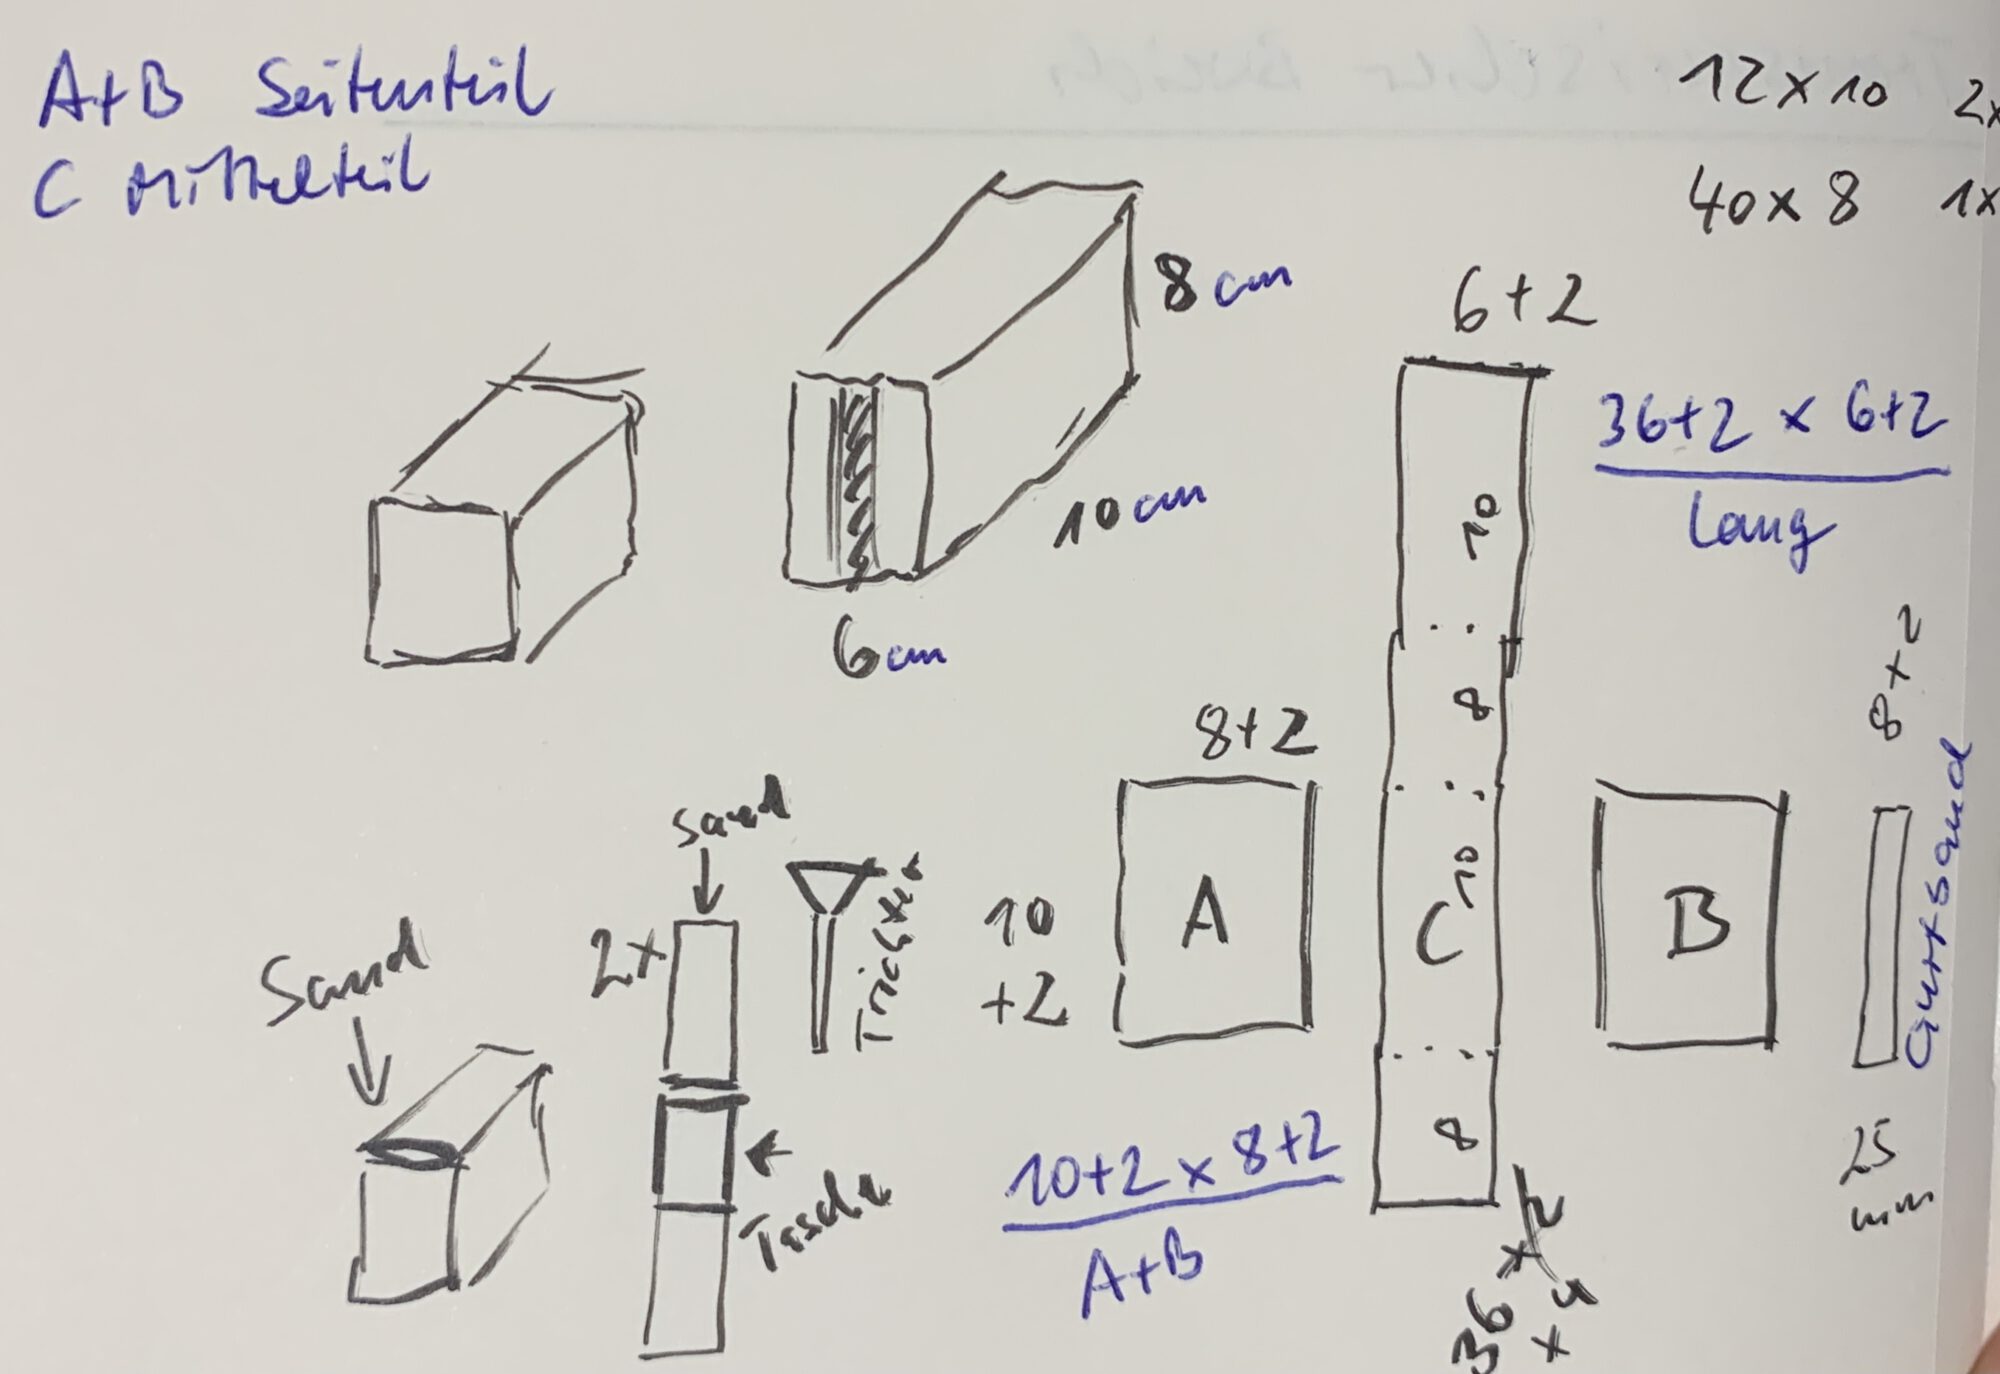 A+B Seitenteil
C Mittelteil
12 x 10 2x
40 x 8 1x
8 cm
10 cm
6 cm
6+2
36+2 x 6+2
Lang
10
8
10
8
C
8+2
10
+2
A
B
8+2
Gurtsand
25
mm
Sand
Sand
2x
Trichter
Tasche
10+2 x 8+2
A+B
36
x 4